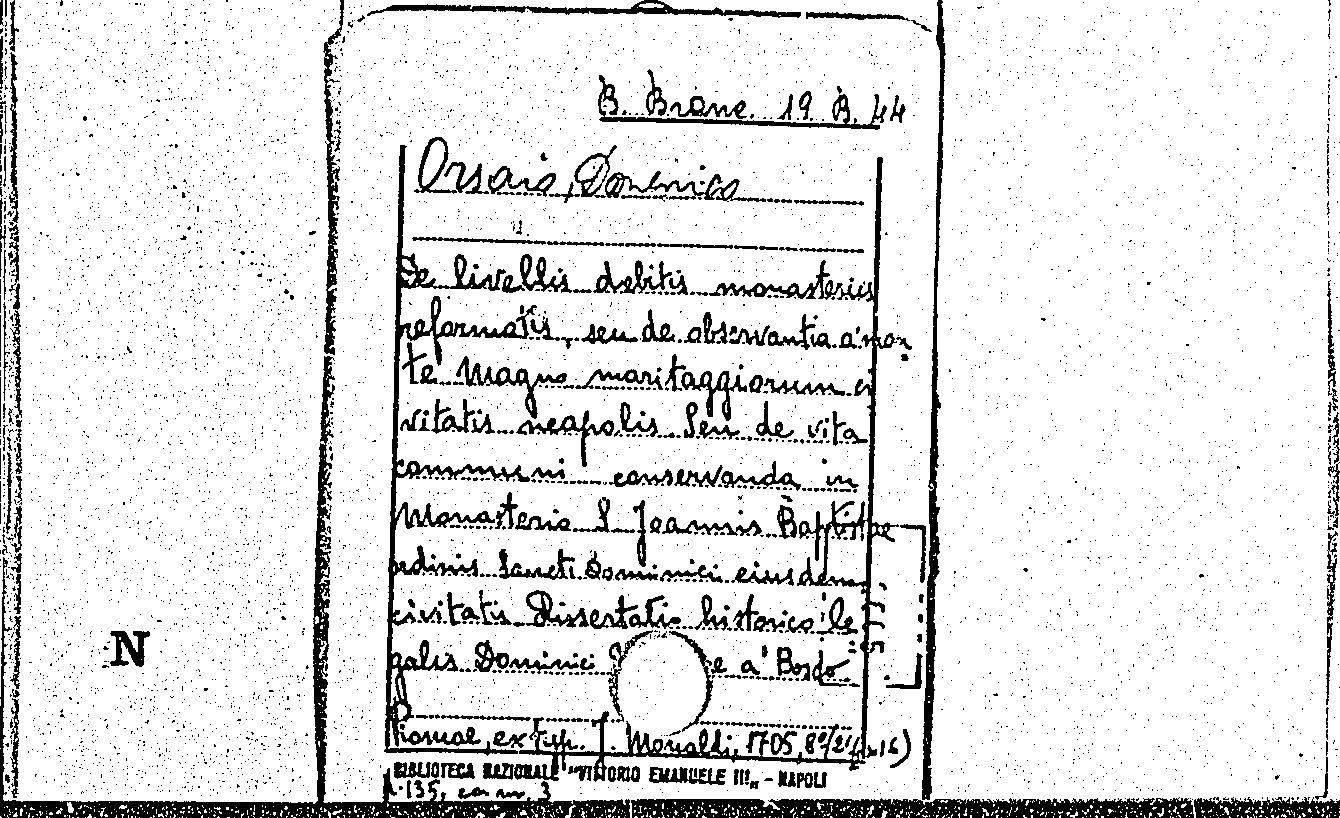 B. Branc. 19. B. 44
Orsaio, Domenico
De livellis debitis monasteriis
reformatis, seu de observantia a' mon
te' Magno maritaggiorum ci
vitatis neapolis. Seu de vita
communi conservanda in
Monasterio S. Joannis Baptistae
ordinis Sancti Dominici eiusdem
civitatis Dissertatio historico le
galis Dominici e a' Bosco.
Romae, ex typ. J. Monaldi, 1705, 8º
BIBLIOTECA NAZIONALE "VITTORIO EMANUELE III" - NAPOLI
p. 135, con n. 3
N